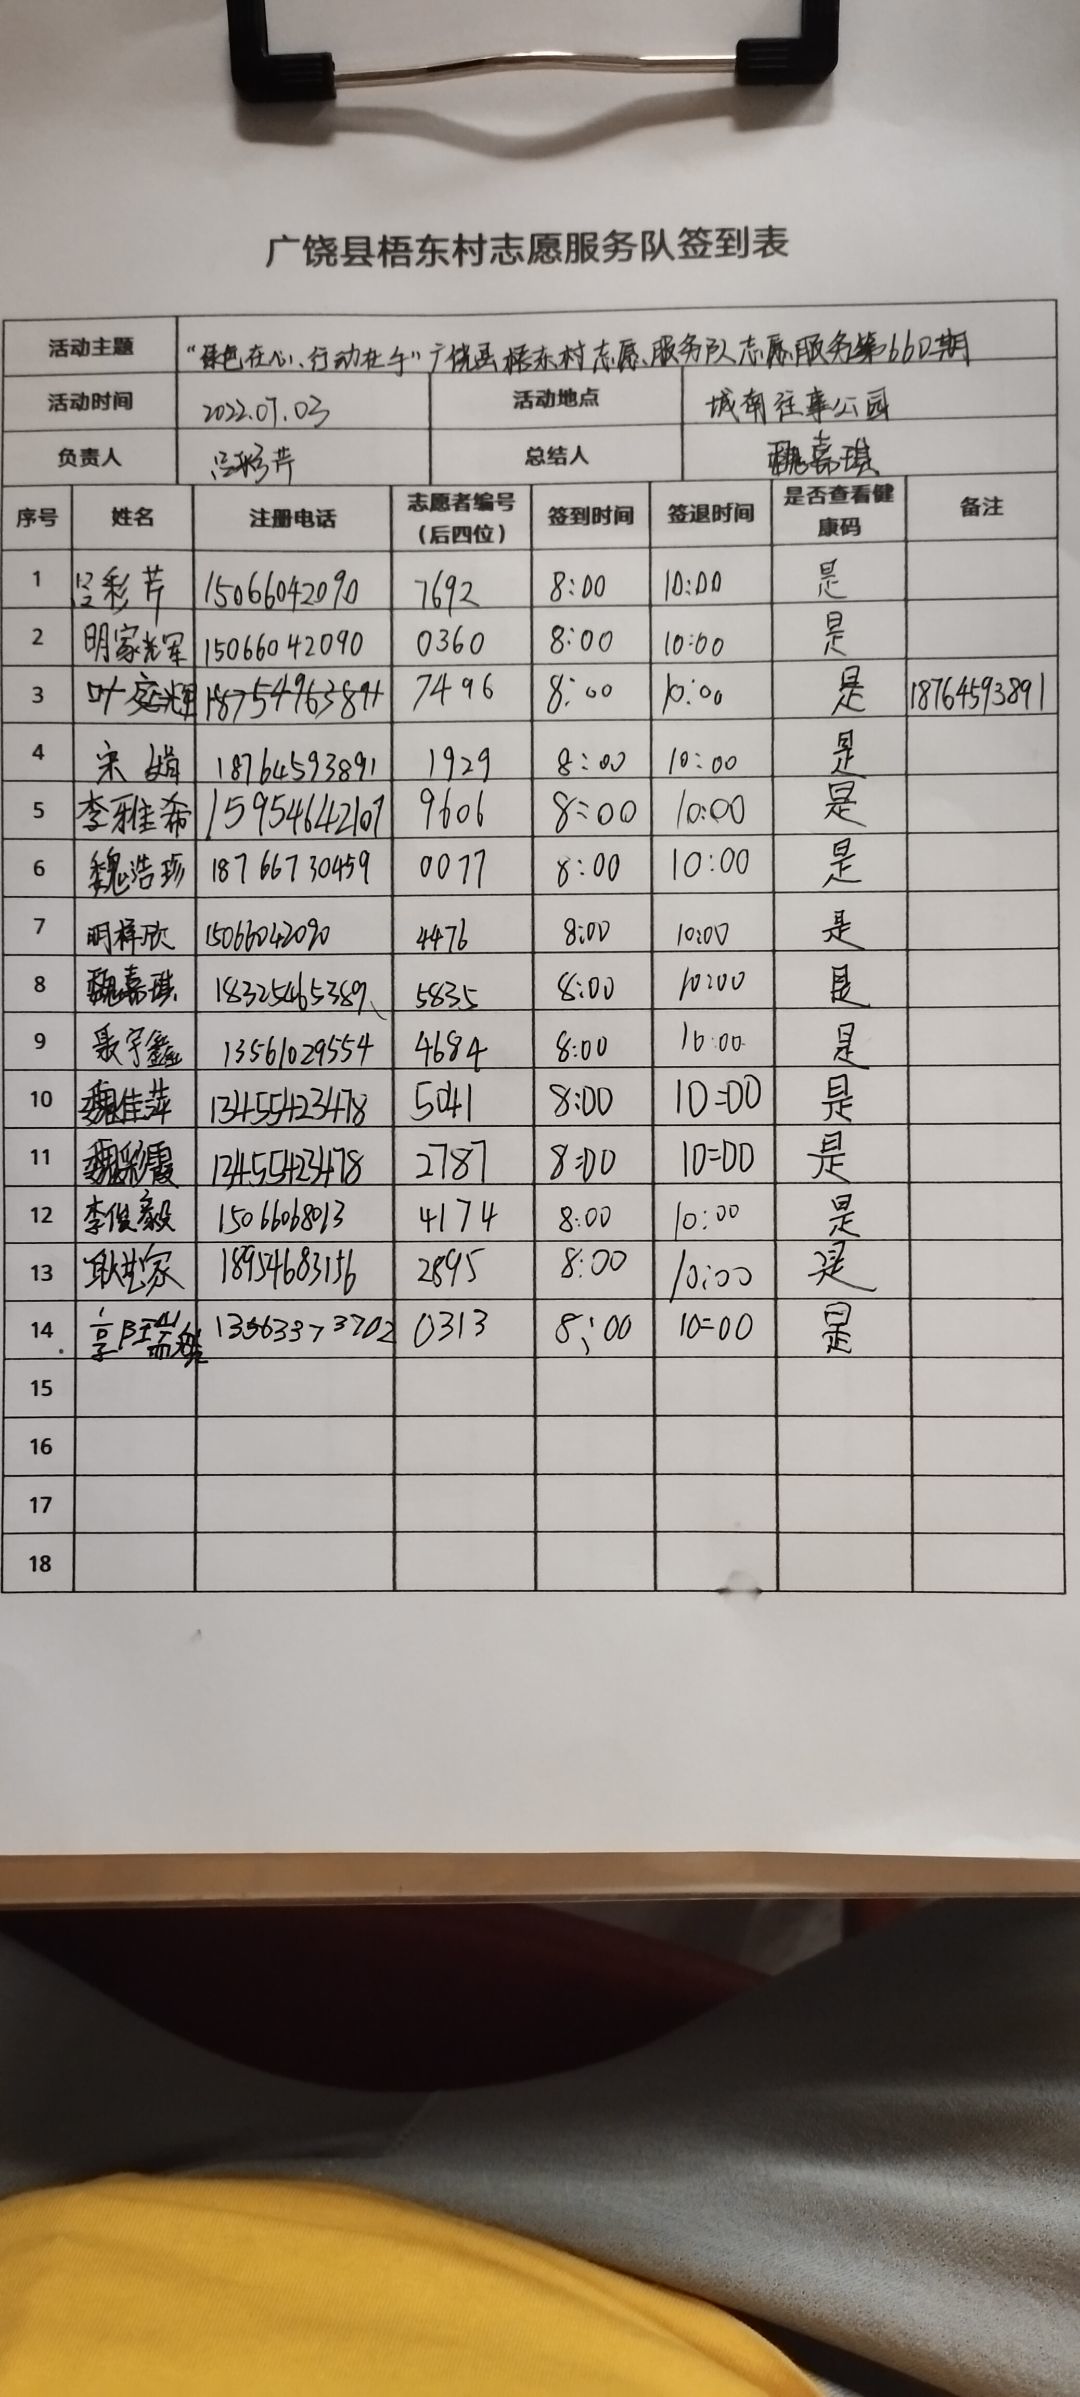 广饶县梧东村志愿服务队签到表
活动主题 “绿色在心、行动在手”广饶县梧东村志愿服务队志愿服务第660期
活动时间 2022.07.03 活动地点 城南往事公园
负责人 吕彩芹 总结人 魏嘉琪
序号 姓名 注册电话 志愿者编号（后四位） 签到时间 签退时间 是否查看健康码 备注
1 吕彩芹 15066042090 7692 8:00 10:00 是
2 明家光军 15066042090 0360 8:00 10:00 是
3 叶庭辉 7496 8:00 10:00 是 18764593891
4 宋娟 18764593891 1929 8:00 10:00 是
5 李雅希 15954642107 9606 8:00 10:00 是
6 魏浩珍 18766730459 0077 8:00 10:00 是
7 明梓欣 15066042090 4476 8:00 10:00 是
8 魏嘉琪 18325465389 5835 8:00 10:00 是
9 聂宇鑫 13561029554 4684 8:00 10:00 是
10 魏佳萍 13455423478 5041 8:00 10:00 是
11 魏彩霞 13455423478 2787 8:00 10:00 是
12 李俊毅 15066068013 4174 8:00 10:00 是
13 耿艺家 18954683156 2895 8:00 10:00 是
14 13563373702 0313 8:00 10:00 是
15
16
17
18